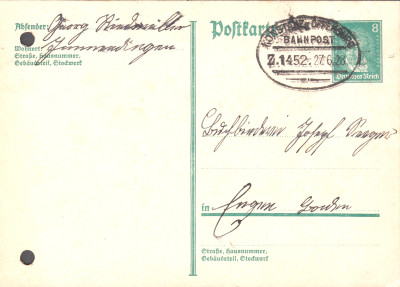 Absender: Georg
Wohnort
Straße, Hausnummer,
Gebäudeteil, Stockwerk
Postkarte
KONSTANZ - OFFENBURG
BAHNPOST
Z.1452. 27.6.28
8
Deutsches Reich
Buchbinderei Josef
in Engen Baden
Straße, Hausnummer,
Gebäudeteil, Stockwerk